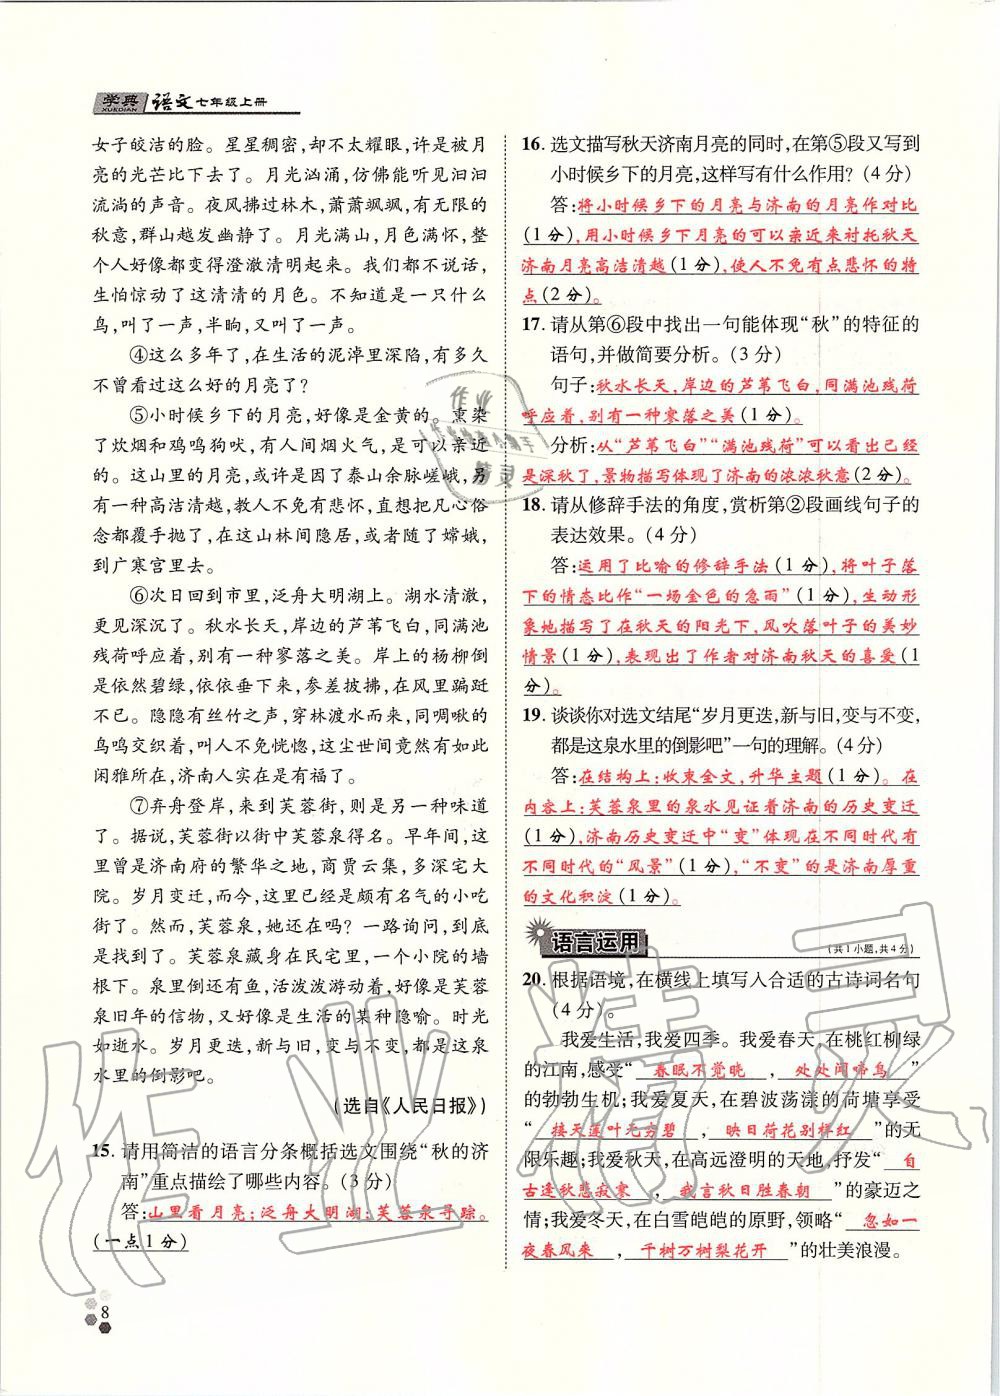 学典 XUEDIAN 语文 七年级上册
女子皎洁的脸。星星稠密，却不太耀眼，许是被月
亮的光芒比下去了。月光汹涌，仿佛能听见汩汩
流淌的声音。夜风拂过林木，萧萧飒飒，有无限的
秋意，群山越发幽静了。月光满山，月色满怀，整
个人好像都变得澄澈清明起来。我们都不说话，
生怕惊动了这清清的月色。不知道是一只什么
鸟，叫了一声，半晌，又叫了一声。
④这么多年了，在生活的泥淖里深陷，有多久
不曾看过这么好的月亮了？
⑤小时候乡下的月亮，好像是金黄的。熏染
了炊烟和鸡鸣狗吠，有人间烟火气，是可以亲近
的。这山里的月亮，或许是因了泰山余脉嵯峨，另
有一种高洁清越，教人不免有悲怀，直想把凡心俗
念都覆手抛了，在这山林间隐居，或者随了嫦娥，
到广寒宫里去。
⑥次日回到市里，泛舟大明湖上。湖水清澈，
更见深沉了。秋水长天，岸边的芦苇飞白，同满池
残荷呼应着，别有一种寥落之美。岸上的杨柳倒
是依然碧绿，依依垂下来，参差披拂，在风里蹁跹
不已。隐隐有丝竹之声，穿林渡水而来，同啁啾的
鸟鸣交织着，叫人不免恍惚，这尘世间竟然有如此
闲雅所在，济南人实在是有福了。
⑦弃舟登岸，来到芙蓉街，则是另一种味道
了。据说，芙蓉街以街中芙蓉泉得名。早年间，这
里曾是济南府的繁华之地，商贾云集，多深宅大
院。岁月变迁，而今，这里已经是颇有名气的小吃
街了。然而，芙蓉泉，她还在吗？一路询问，到底
是寻到了。芙蓉泉藏身在民宅里，一个小院的墙
根下。泉里倒还有鱼，活泼泼游动着，好像是芙蓉
泉旧年的信物，又好像是生活的某种隐喻。时光
如逝水。岁月更迭，新与旧，变与不变，都是这泉
水里的倒影吧。
（选自《人民日报》）
15. 请用简洁的语言分条概括选文围绕“秋的济
南”重点描绘了哪些内容。（3分）
答：山里看月亮；泛舟大明湖；芙蓉泉寻踪。
（一点1分）
8
16. 选文描写秋天济南月亮的同时，在第⑤段又写到
小时候乡下的月亮，这样写有什么作用？（4分）
答：将小时候乡下的月亮与济南的月亮作对比
（1分），用小时候乡下月亮的可以亲近来衬托秋天
济南月亮高洁清越（1分），使人不免有点悲怀的特
点（2分）。
17. 请从第⑥段中找出一句能体现“秋”的特征的
语句，并做简要分析。（3分）
句子：秋水长天，岸边的芦苇飞白，同满池残荷
呼应着，别有一种寥落之美（1分）。
分析：从“芦苇飞白”“满池残荷”可以看出已经
是深秋了，景物描写体现了济南的浓浓秋意（2分）。
18. 请从修辞手法的角度，赏析第②段画线句子的
表达效果。（4分）
答：运用了比喻的修辞手法（1分），将叶子落
下的情态比作“一场金色的急雨”（1分），生动形
象地描写了在秋天的阳光下，风吹落叶子的美妙
情景（1分），表现出了作者对济南秋天的喜爱（1
分）。
19. 谈谈你对选文结尾“岁月更迭，新与旧，变与不变，
都是这泉水里的倒影吧”一句的理解。（4分）
答：在结构上：收束全文，升华主题（1分）。在
内容上：芙蓉泉里的泉水见证着济南的历史变迁
（1分），济南历史变迁中“变”体现在不同时代有
不同时代的“风景”（1分），“不变”的是济南厚重
的文化积淀（1分）。
语言运用 （共1小题，共4分）
20. 根据语境，在横线上填写入合适的古诗词名句
（4分）。
我爱生活，我爱四季。我爱春天，在桃红柳绿
的江南，感受“ 春眠不觉晓 ， 处处闻啼鸟 ”
的勃勃生机；我爱夏天，在碧波荡漾的荷塘享受
“ 接天莲叶无穷碧 ， 映日荷花别样红 ”的无
限乐趣；我爱秋天，在高远澄明的天地，抒发“ 自
古逢秋悲寂寥 ， 我言秋日胜春朝 ”的豪迈之
情；我爱冬天，在白雪皑皑的原野，领略“ 忽如一
夜春风来 ， 千树万树梨花开 ”的壮美浪漫。
作业精灵